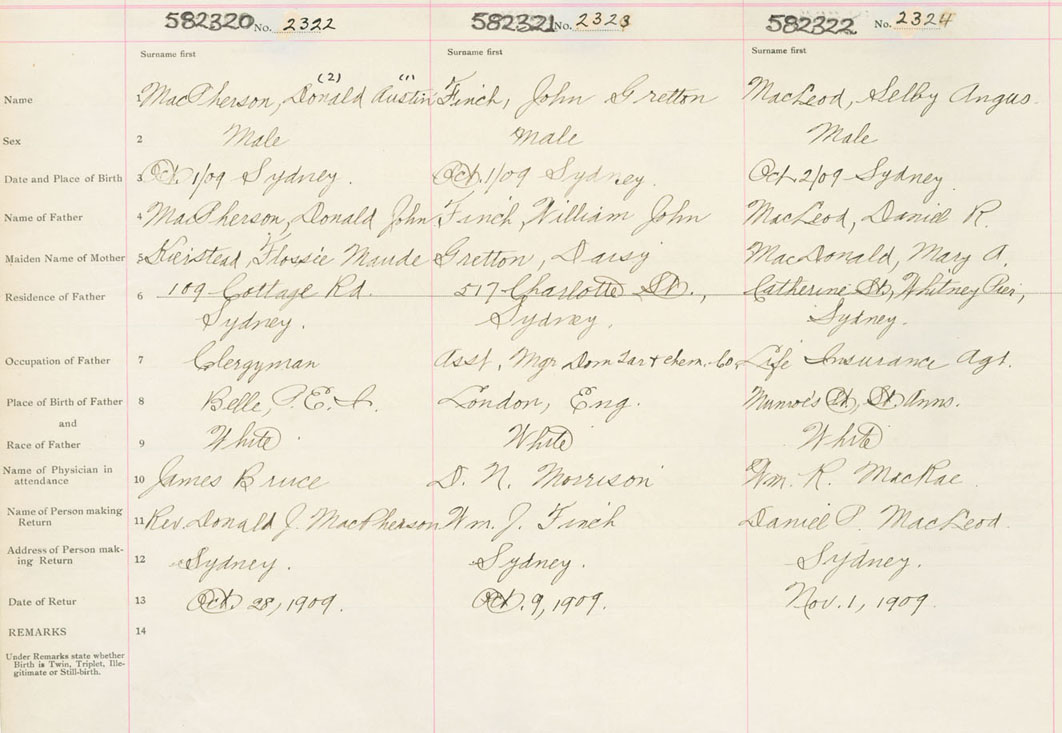 582320 No. 2322 582321 No. 2323 582322 No. 2324
Surname first Surname first Surname first
(2) (1)
Name 1 MacPherson, Donald Austin Finch, John Gretton MacLeod, Selby Angus.
Sex 2 Male Male Male
Date and Place of Birth 3 Oct. 1/09 Sydney. Oct. 1/09 Sydney. Oct. 2/09 Sydney.
Name of Father 4 MacPherson, Donald John Finch, William John MacLeod, Daniel R.
Maiden Name of Mother 5 Kierstead, Flossie Maude Gretton, Daisy MacDonald, Mary A.
Residence of Father 6 109 Cottage Rd. 517 Charlotte St., Catherine St., Whitney Pier,
Sydney. Sydney. Sydney.
Occupation of Father 7 Clergyman Asst. Mgr Dom Tar + Chem. Co. Life Insurance Agt.
Place of Birth of Father 8 Belle, P.E.I. London, Eng. Munroe's St. Anns.
and
Race of Father 9 White White White
Name of Physician in
attendance 10 James Bruce D. N. Morrison Wm. R. MacRae
Name of Person making
Return 11 Rev. Donald J. MacPherson Wm. J. Finch Daniel P. MacLeod.
Address of Person mak-
ing Return 12 Sydney. Sydney. Sydney.
Date of Retur 13 Oct. 28, 1909. Oct. 9, 1909. Nov. 1, 1909.
REMARKS 14
Under Remarks state whether
Birth is Twin, Triplet, Ille-
gitimate or Still-birth.